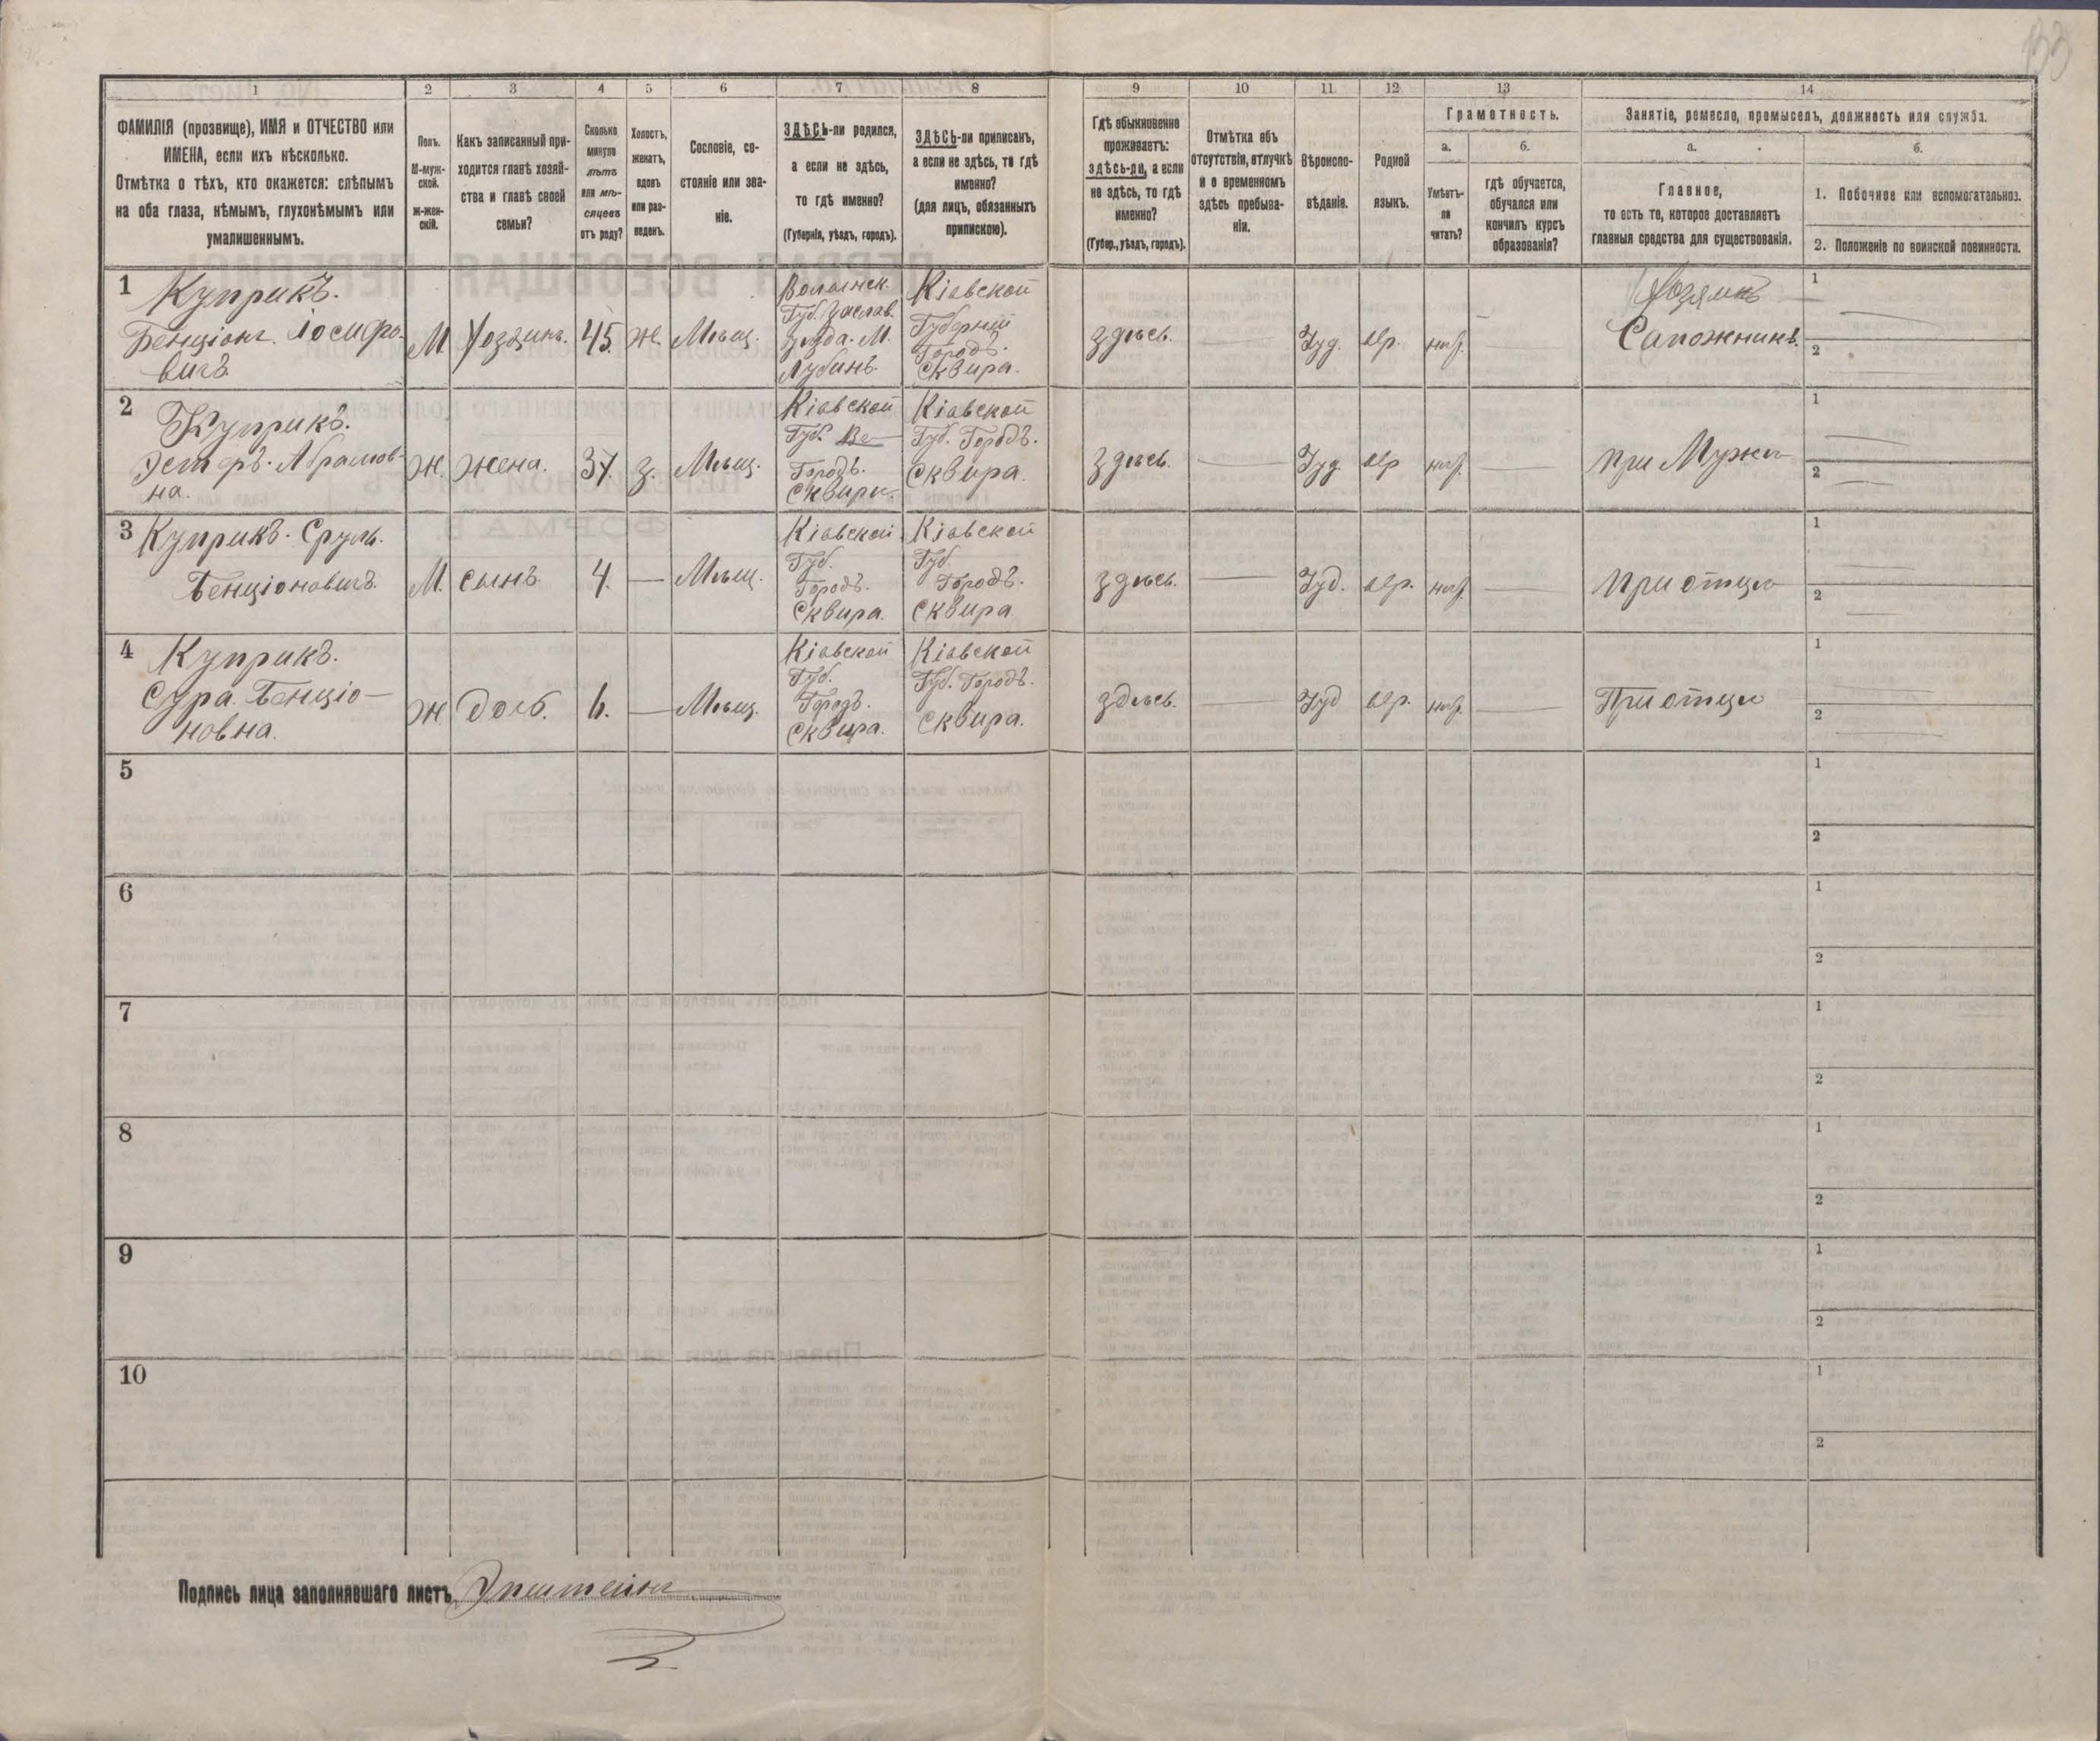 1 2 3 4 5 6 7 8 9 10 11 12 13 14
ФАМИЛІЯ (прозвище), ИМЯ и ОТЧЕСТВО или
ИМЕНА, если ихъ нѣсколько.
Отмѣтка о тѣхъ, кто окажется: слѣпымъ
на оба глаза, нѣмымъ, глухонѣмымъ или
умалишеннымъ.
Полъ.
М-муж-
ской.
ж-жен-
скій.
Какъ записанный при-
ходится главѣ хозяй-
ства и главѣ своей
семьи?
Сколько
минуло
лѣтъ
или мѣ-
сяцевъ
отъ роду?
Холостъ,
женатъ,
вдовъ
или раз-
веденъ.
Сословіе, со-
стояніе или зва-
ніе.
ЗДѢСЬ-ли родился,
а если не здѣсь,
то гдѣ именно?
(Губернія, уѣздъ, городъ).
ЗДѢСЬ-ли приписанъ,
а если не здѣсь, то гдѣ
именно?
(для лицъ, обязанныхъ
припискою).
Гдѣ обыкновенно
проживаетъ:
здѣсь-ли, а если
не здѣсь, то гдѣ
именно?
(Губер., уѣздъ, городъ).
Отмѣтка объ
отсутствіи, отлучкѣ
и о временномъ
здѣсь пребыва-
ніи.
Вѣроиспо-
вѣданіе.
Родной
языкъ.
Грамотность.
а.
Умѣетъ-
ли
читать?
б.
гдѣ обучается,
обучался или
кончилъ курсъ
образованія?
Занятіе, ремесло, промыселъ, должность или служба.
а.
Главное,
то есть то, которое доставляетъ
главныя средства для существованія.
б.
1. Побочное или вспомогательное.
2. Положеніе по воинской повинности.
1 Куприкъ.
Бенціонъ Іосифо-
вичъ
М.
Хозяинъ.
45.
ж.
Мѣщ.
Волынск.
Губ. Заслав.
уезда. М.
Лубинь.
Кіевской
Губерніи
Городъ.
Сквира.
здѣсь.
Іуд.
евр.
Хозяинъ
Сапожникъ.
1
2
2 Куприкъ.
Эстеръ Абрамов-
на.
Ж.
жена.
37.
з.
Мѣщ.
Кіевской
Губ.
Городъ.
Кіевской
Губ. Городъ.
Сквира.
здѣсь.
Іуд
евр
при Мужѣ
1
2
3 Куприкъ. Сруль.
Бенціоновичъ.
М.
сынъ
4.
Мѣщ.
Кіевской
Губ.
Городъ.
Сквира.
Кіевской
Губ.
Городъ.
Сквира
здѣсь.
Іуд.
евр.
при отцѣ
1
2
4 Куприкъ.
Сура Бенціо-
новна.
Ж
доч.
6.
Мѣщ.
Кіевской
Губ.
Городъ.
Сквира.
Кіевской
Губ. Городъ.
Сквира.
здѣсь.
Іуд
евр.
При отцѣ
1
2
5
1
2
6
1
2
7
1
2
8
1
2
9
1
2
10
1
2
Подпись лица заполнявшаго листъ Эпштейнъ